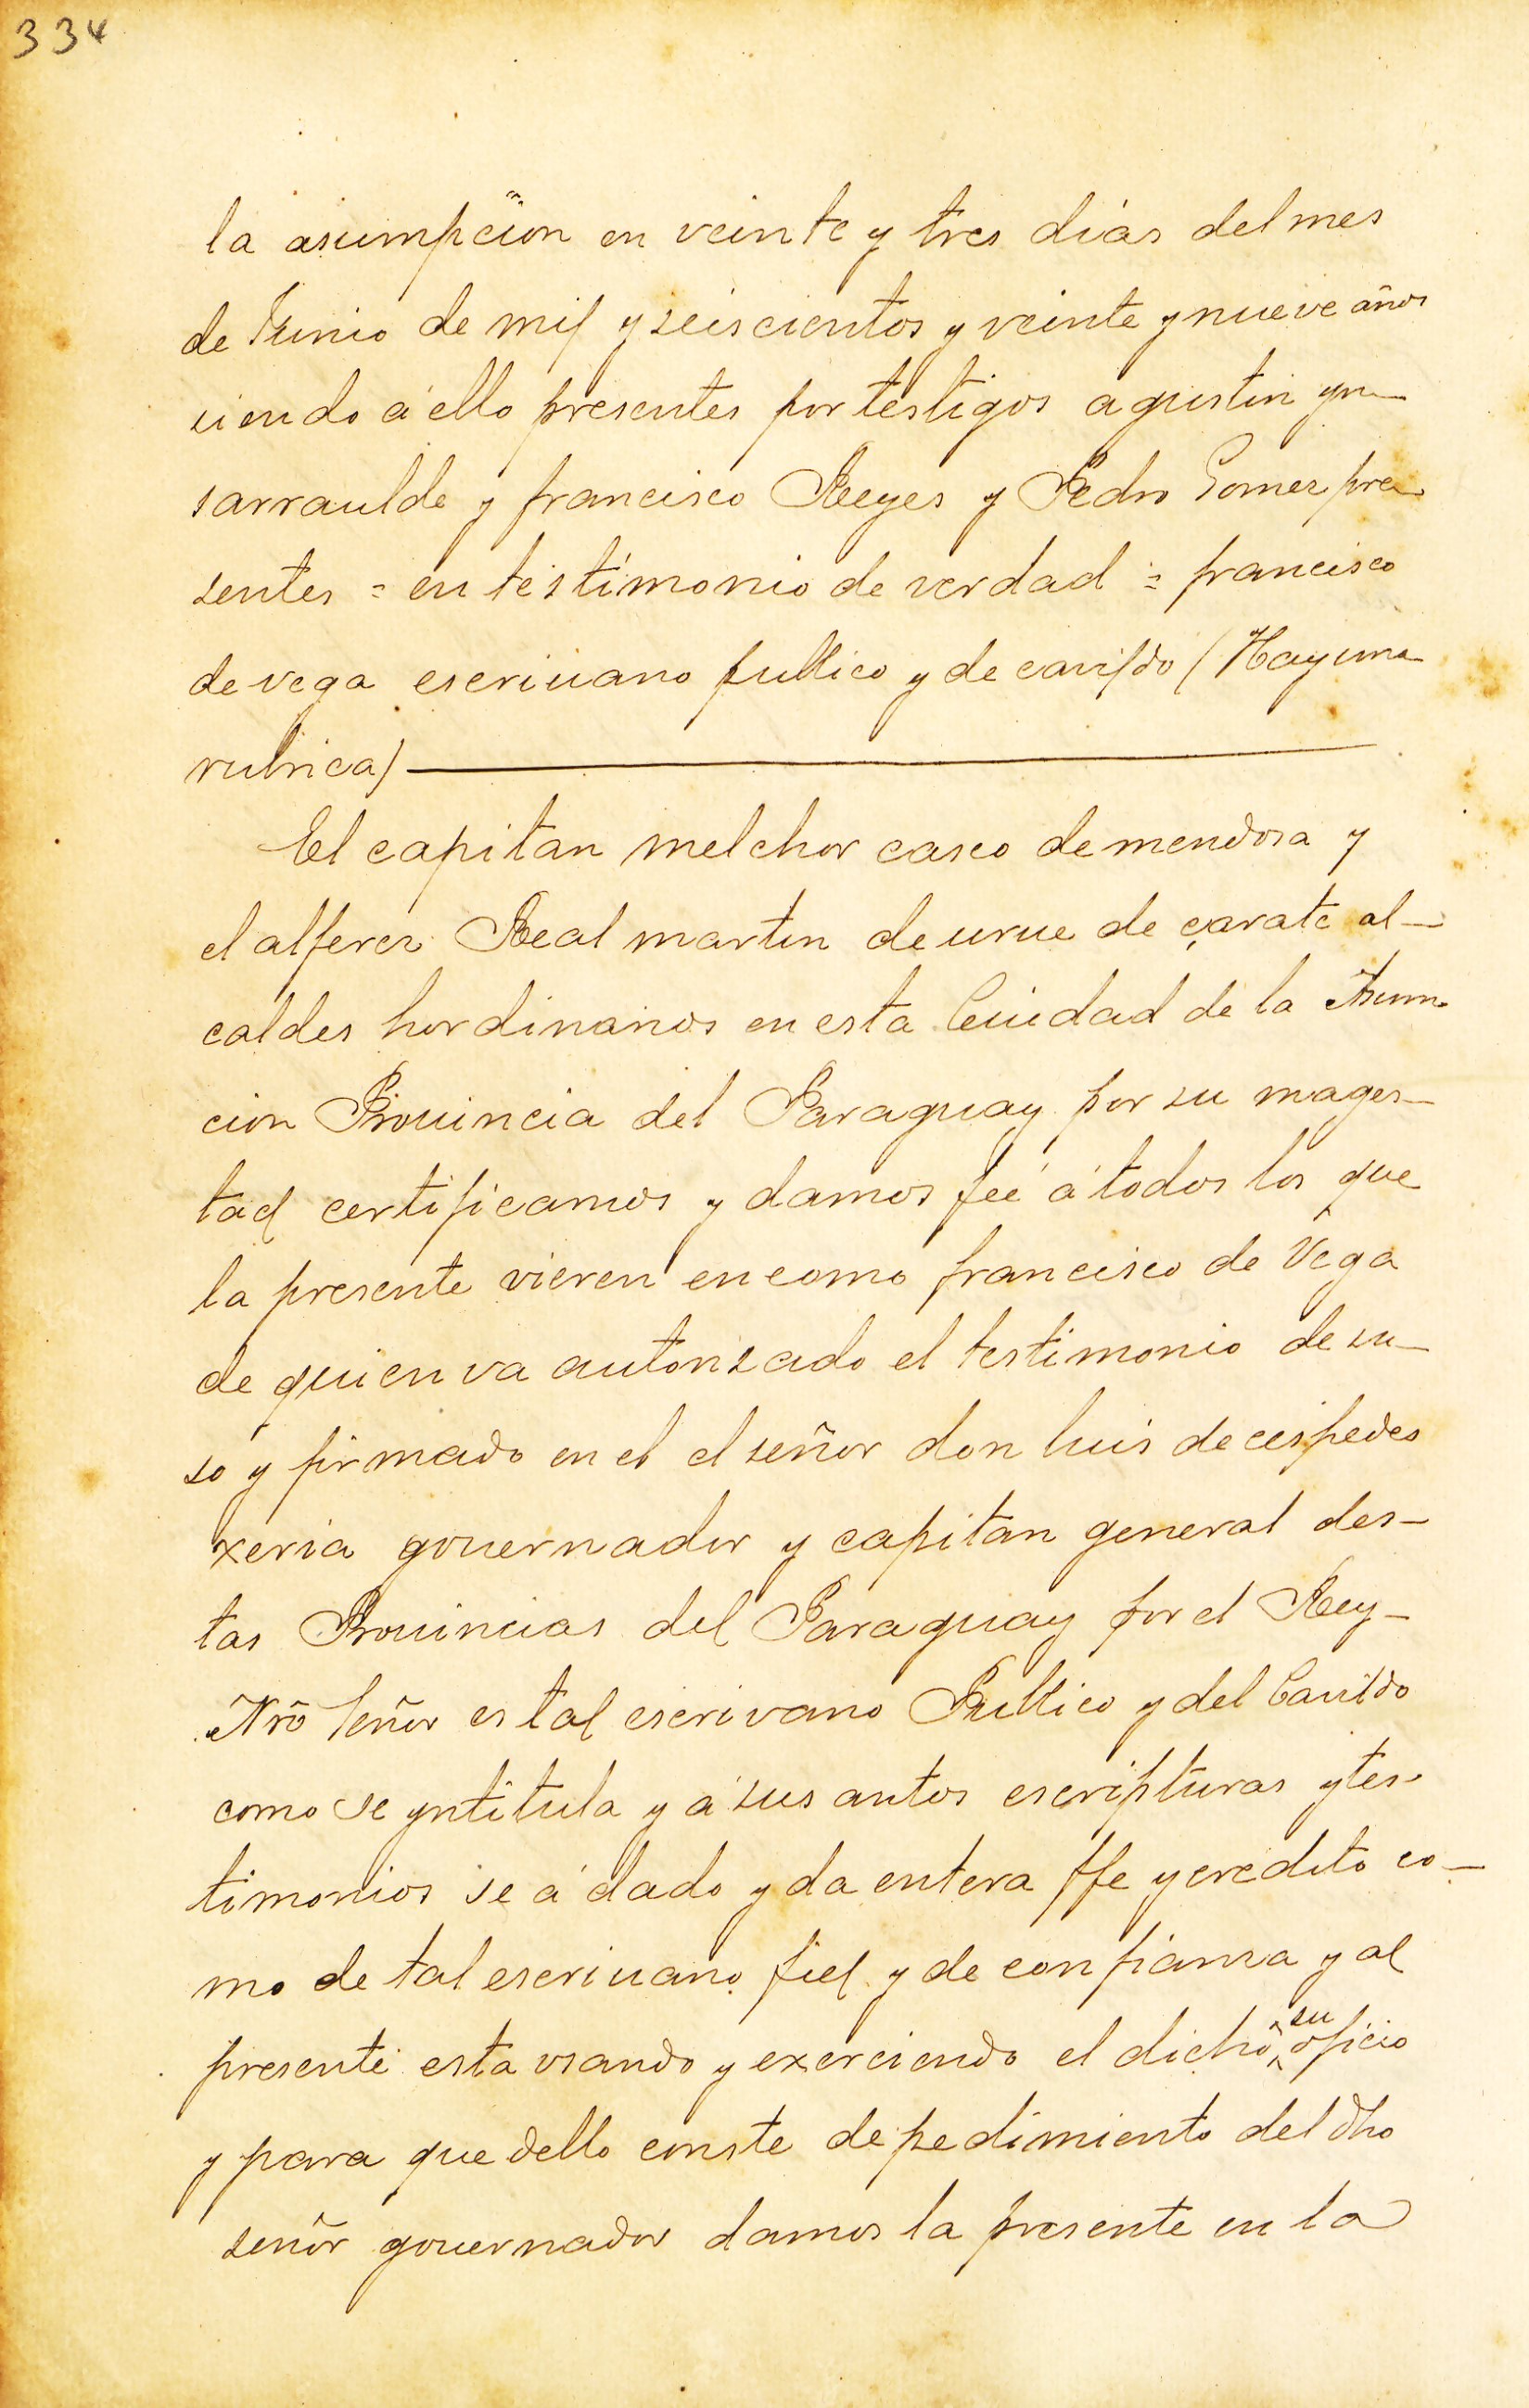 334
la asumpcion en veinte y tres dias del mes
de Junio de mil y seiscientos y veinte y nueve años
siendo á ello presentes por testigos agustin yn—
sarraulde y francisco Reyes y Pedro Gomez pre-
sentes = en testimonio de verdad = francisco
de vega escriuano publico y de cavildo (Hay una
rubrica) —
El capitan melchor casco de mendosa y
el alferez Real martin de urue de çarate al—
caldes hordinarios en esta Ciudad de la Asum-
cion Prouincia del Paraguay por su mages—
tad certificamos y damos feé á todos los que
la presente vieren en como francisco de Vega
de quien va autorisado el testimonio de su—
so y firmado en el el señor don luis de cespedes
xeria gouernador y capitan general des—
tas Prouincias del Paraguay por el Rey—
Nrõ Señor es tal escrivano Publico y del Cauildo
como se yntitula y á sus autos escripturas y tes-
timonios se á dado y da entera ffe y credito co—
mo de tal escriuano fiel y de confiansa y al
presente esta usando y exerciendo el dicho su oficio
y para que dello conste de pedimiento del dho
señor gouernador damos la presente en la